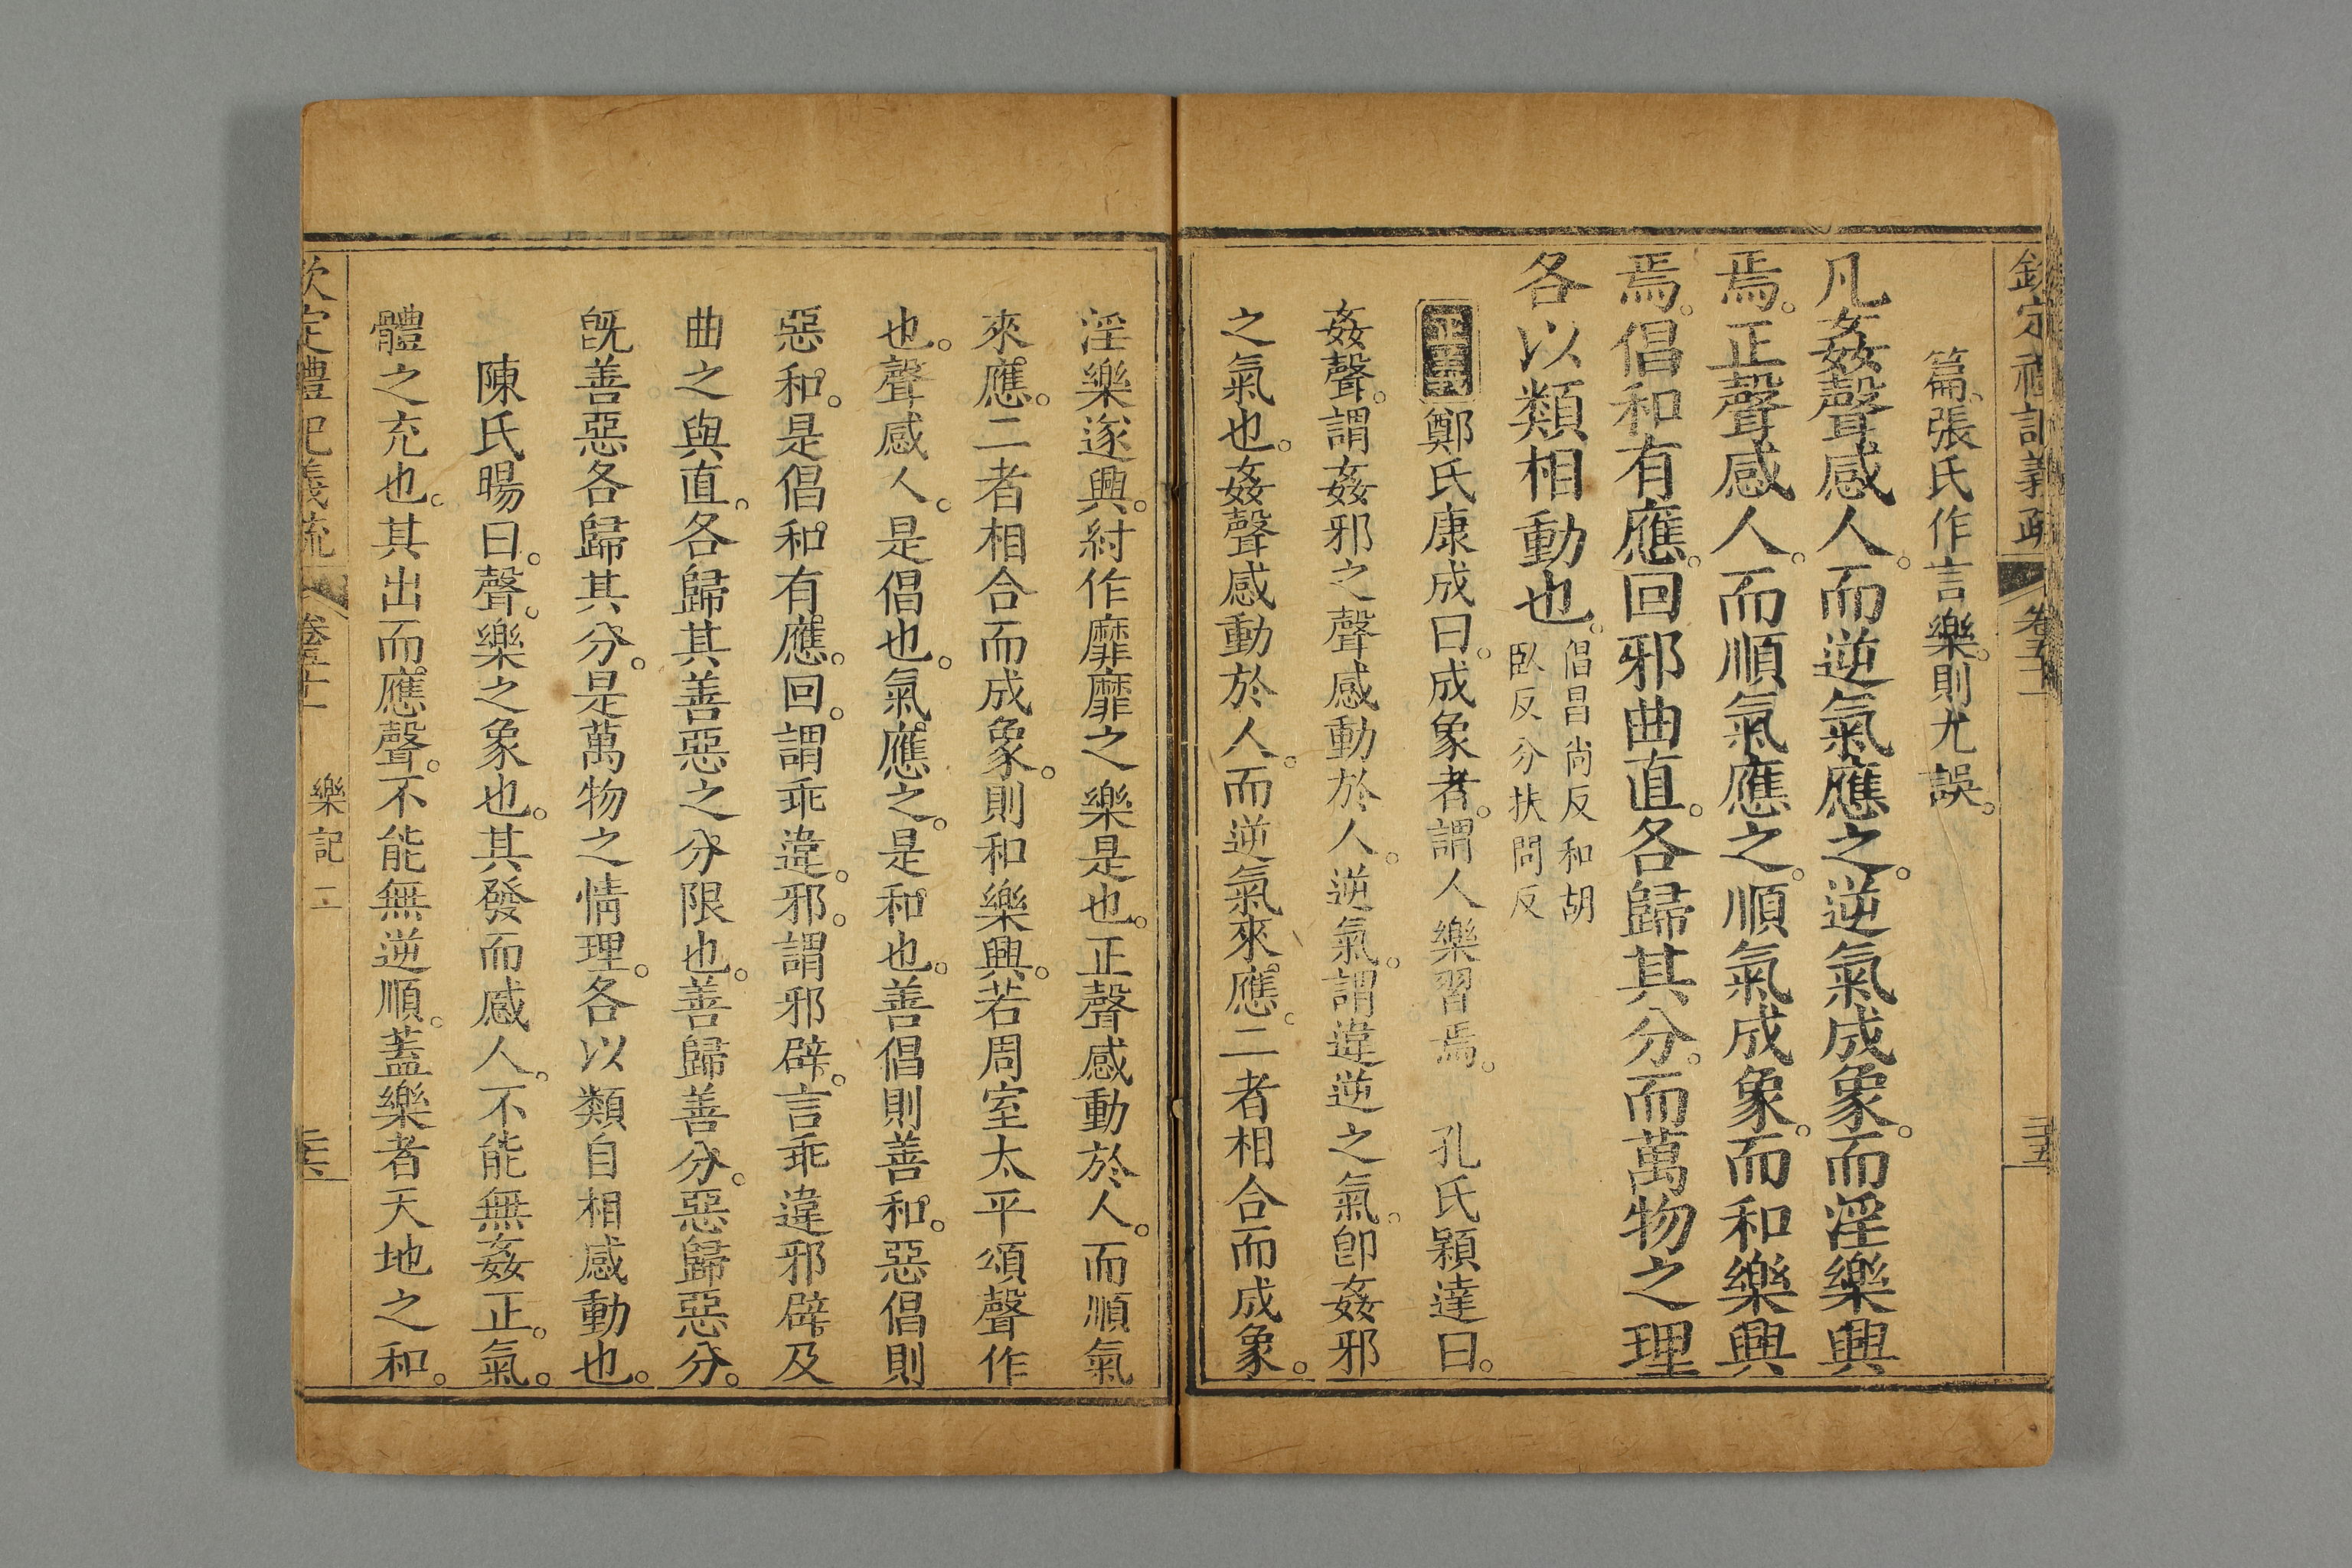 欽定禮記義疏 卷五十一 二十五
篇張氏作言樂則尤誤。
凡姦聲感人。而逆氣應之。逆氣成象。而淫樂興
焉。正聲感人。而順氣應之。順氣成象。而和樂興
焉。倡和有應。回邪曲直。各歸其分。而萬物之理
各以類相動也。倡昌尚反和胡
臥反分扶問反
正義鄭氏康成曰。成象者。謂人樂習焉。 孔氏穎達曰。
姦聲。謂姦邪之聲感動於人。逆氣。謂違逆之氣。卽姦邪
之氣也。姦聲感動於人。而逆氣來應。二者相合而成象。
淫樂遂興。紂作靡靡之樂是也。正聲感動於人。而順氣
來應。二者相合而成象。則和樂興。若周室太平頌聲作
也。聲感人。是倡也。氣應之。是和也。善倡則善和。惡倡則
惡和。是倡和有應。回。謂乖違。邪。謂邪辟。言乖違邪辟及
曲之與直。各歸其善惡之分限也。善歸善分。惡歸惡分。
旣善惡各歸其分。是萬物之情理。各以類自相感動也。
陳氏暘曰。聲。樂之象也。其發而感人。不能無姦正。氣。
體之充也。其出而應聲。不能無逆順。蓋樂者天地之和。
欽定禮記義疏 卷五十一 樂記二 二十六